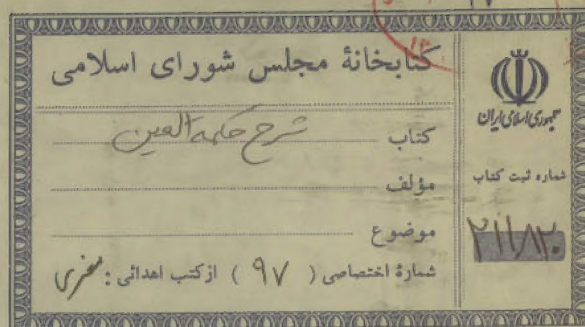 کتابخانهٔ مجلس شورای اسلامی
کتاب شرح حکمة العین
مؤلف
موضوع
شمارهٔ اختصاصی ( ۹۷ ) از کتب اهدائی :
جمهوری اسلامی ایران
شماره ثبت کتاب